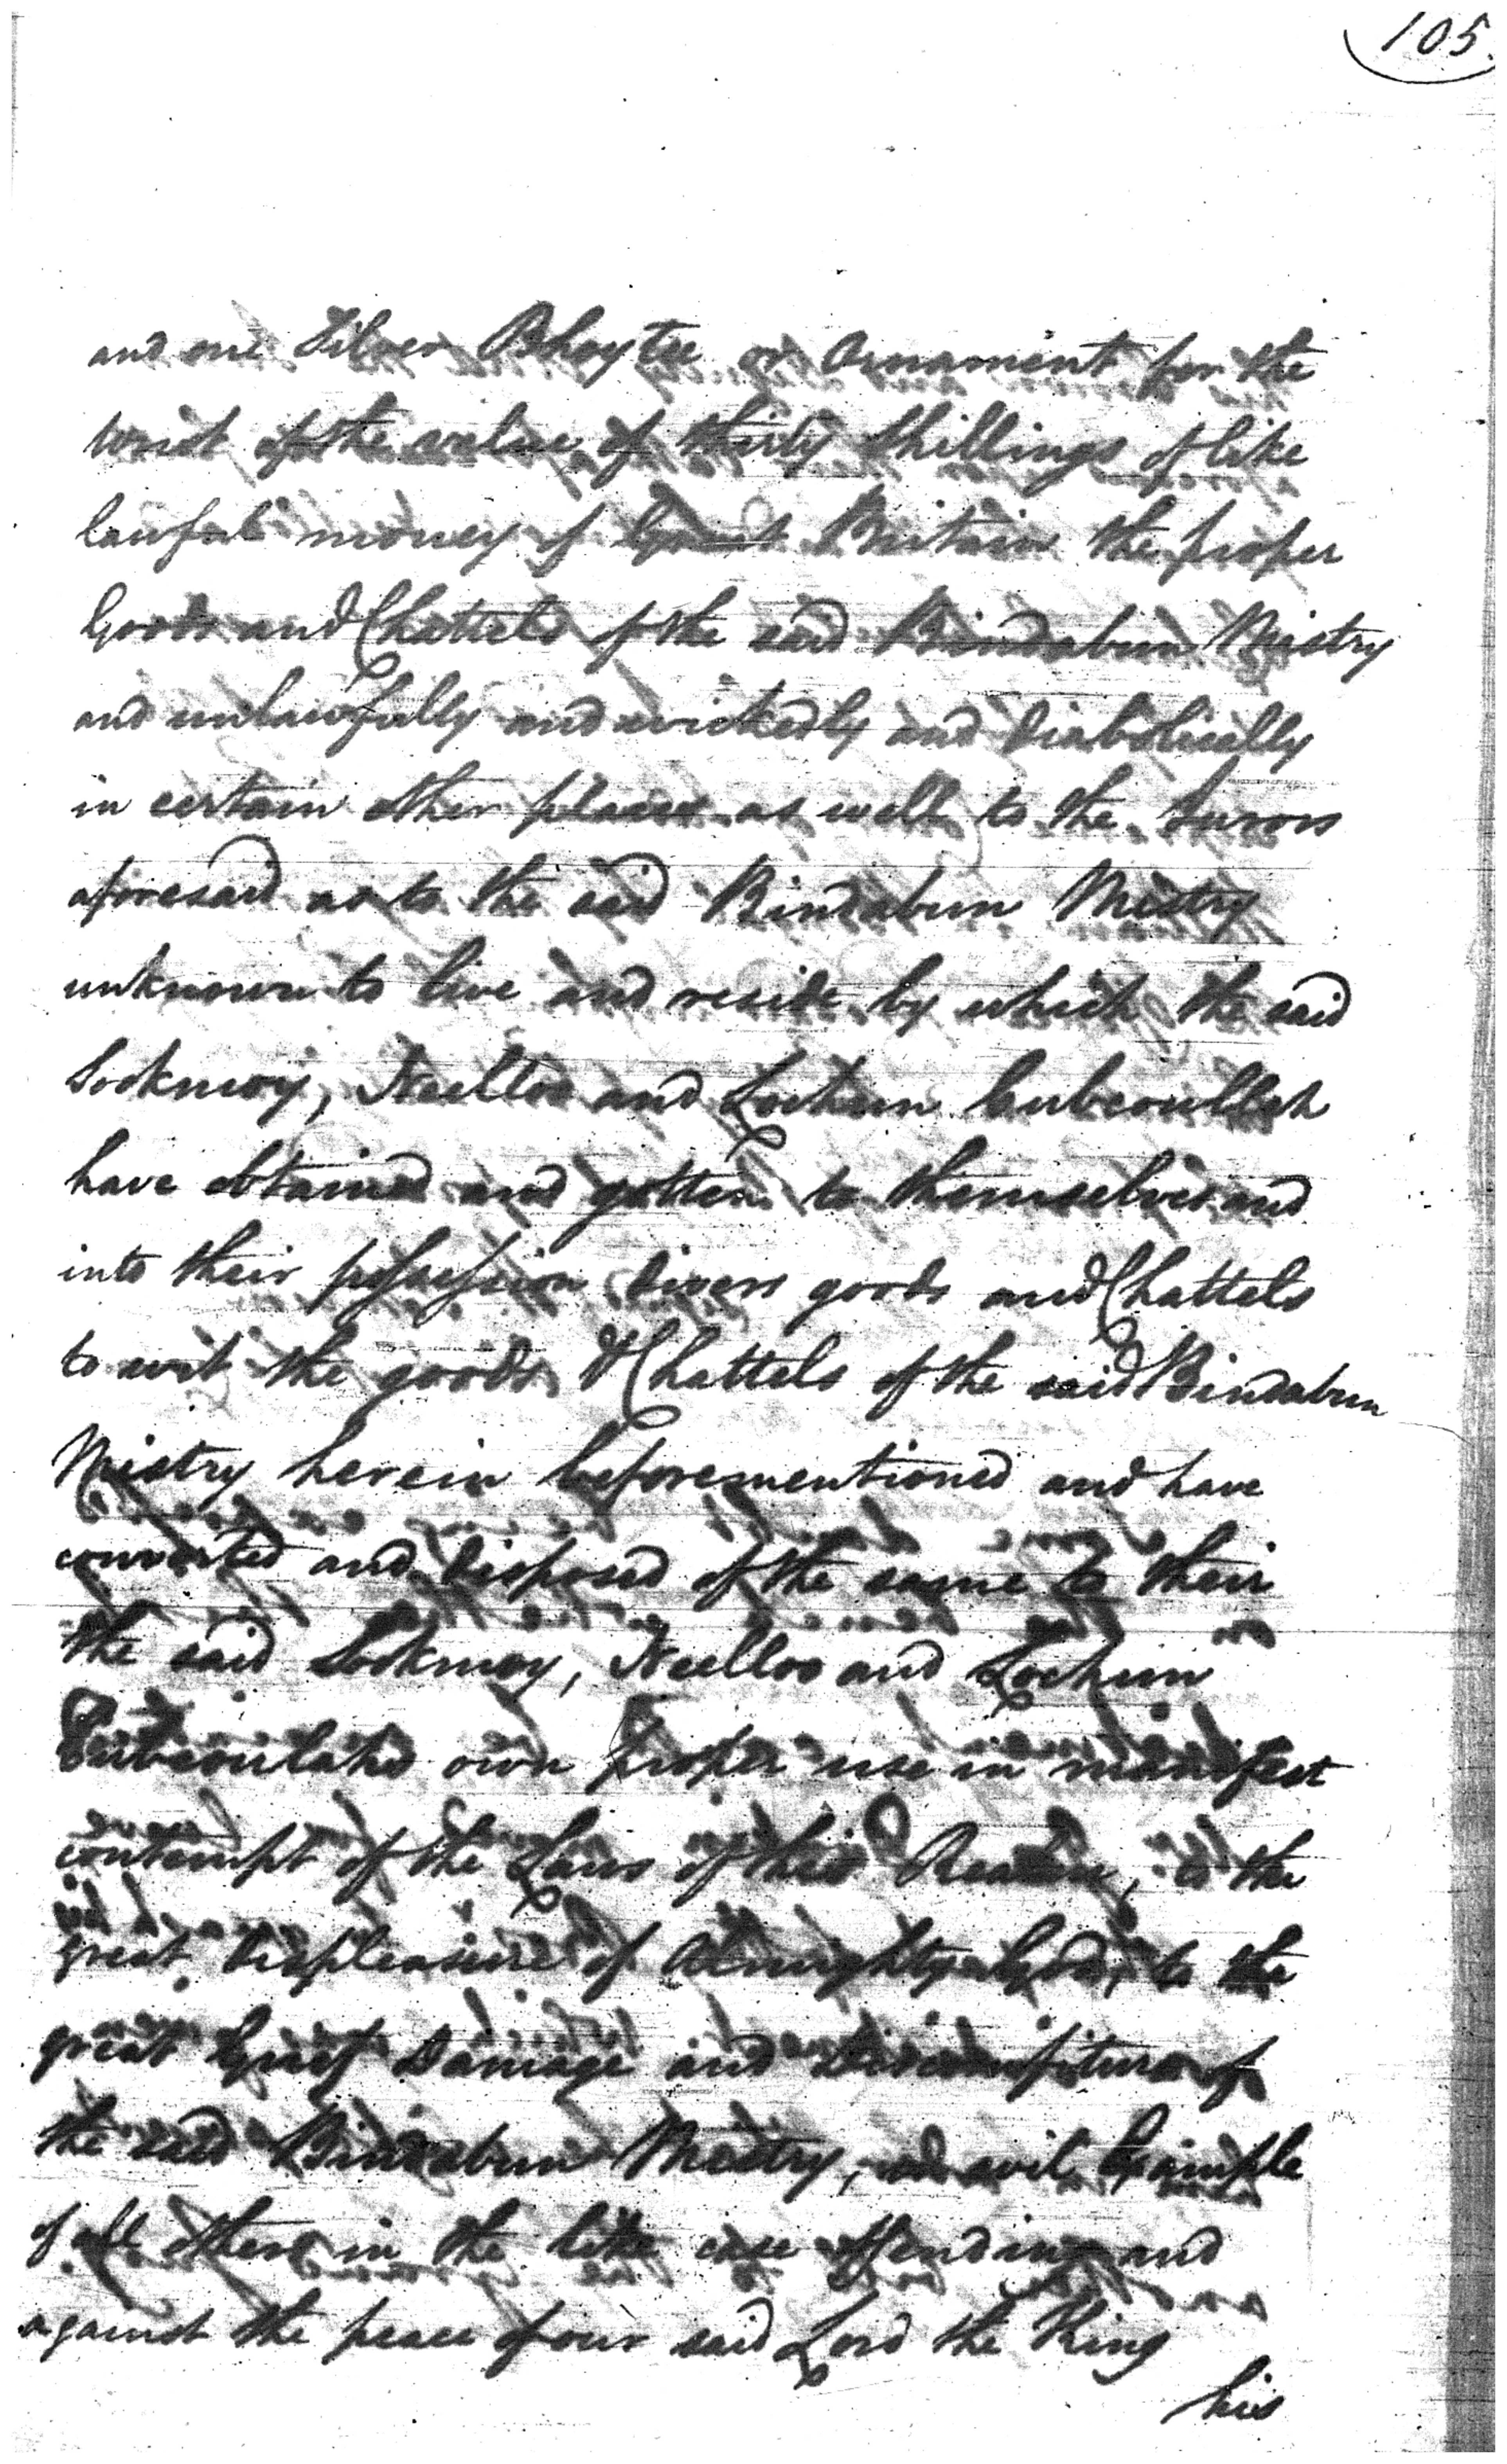 105.
and one Silver Bhoytee or Ornament for the
wrist of the value of thirty Shillings of like
lawful money of Great Britain the proper
Goods and Chattels of the said Bindabun Mistry
and unlawfully and wickedly and Diabolically
in certain other places as well to the Jurors
aforesaid as to the said Bindabun Mistry
unknown to live and reside by which the said
Sookmoy, Neelloo and Lochun
have obtained and gotten to themselves and
into their possession Divers goods and Chattels
to wit the goods & Chattels of the said Bindabun
Mistry herein beforementioned and have
converted and Disposed of the same to their
the said Sookmoy, Neelloo and Lochun
own proper use in manifest
contempt of the Laws of this Realm, to the
great Displeasure of Almighty God, to the
great Grief Damage and Discomfiture of
the said Bindabun Mistry, evil Example
of all others in the like case offending and
against the peace of our said Lord the King
his